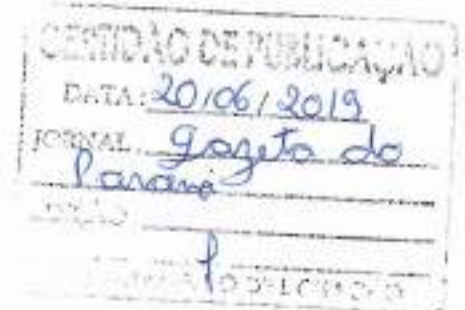 CERTIDÃO DE PUBLICAÇÃO
DATA: 20/06/2019
JORNAL Gazeta do
Paraná